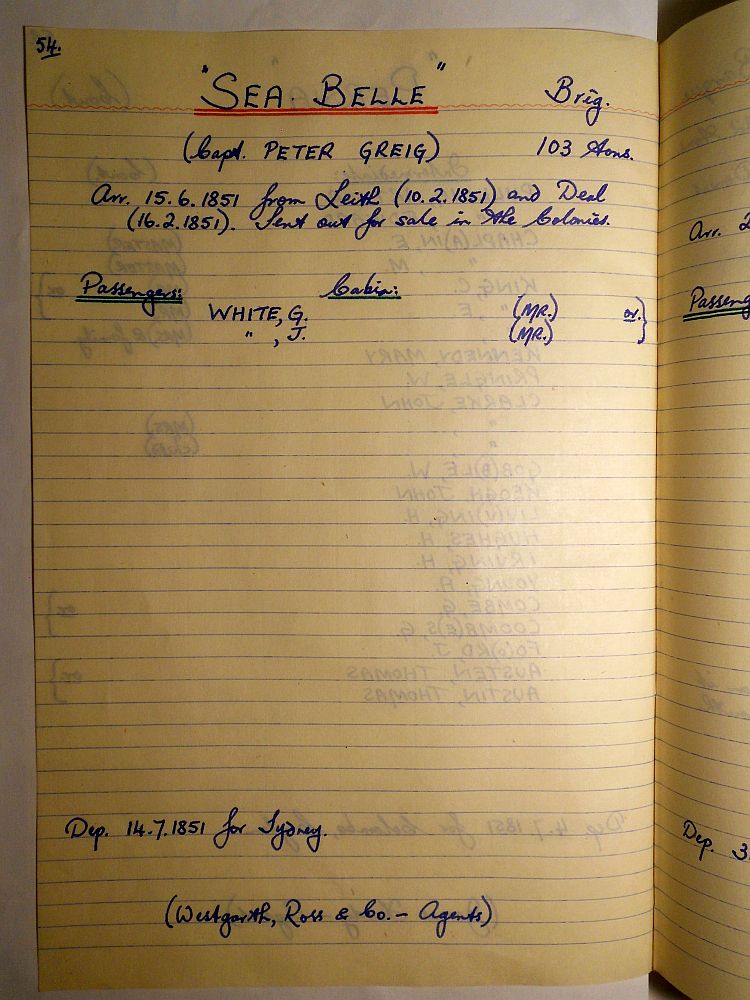 54.
"SEA BELLE" Brig.
(Capt. PETER GREIG) 103 tons.
Arr. 15.6.1851 from Leith (10.2.1851) and Deal
(16.2.1851). Sent out for sale in the Colonies.
Passengers: Cabin:
WHITE, G. (MR.) or }
" , J. (MR.)
Dep. 14.7.1851 for Sydney.
(Westgarth, Ross & Co. - Agents)
Arr. 2
Passeng
Dep. 3